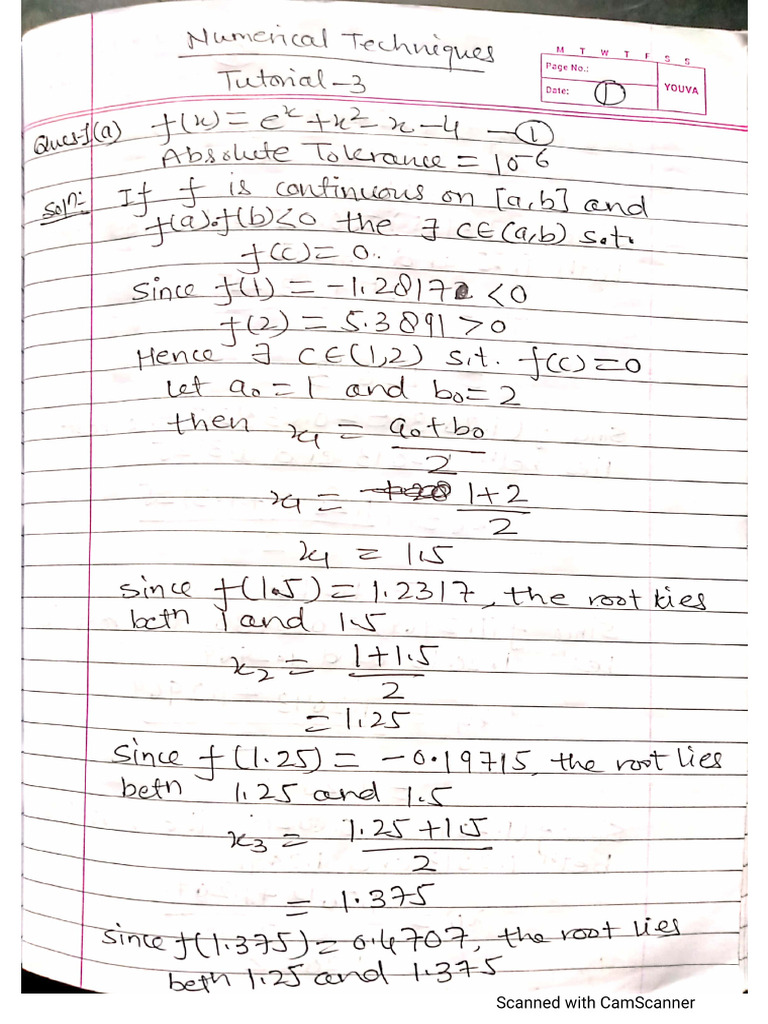 Numerical Techniques
Tutorial-3
M T W T F S S
Page No.:
Date: 1
YOUVA
Ques1(a) f(x) = e^x + x^2 - x - 4 — ①
Absolute Tolerance = 10^-6
Soln: If f is continuous on [a,b] and
f(a).f(b)<0 the ∃ c∈(a,b) s.t.
f(c) = 0.
Since f(1) = -1.2817 <0
f(2) = 5.3891 >0
Hence ∃ c∈(1,2) s.t. f(c)=0
let a₀ = 1 and b₀ = 2
then x₁ = a₀+b₀
2
x₁ = 1+2
2
x₁ = 1.5
since f(1.5) = 1.2317, the root lies
betn 1 and 1.5.
x₂ = 1+1.5
2
= 1.25
Since f(1.25) = -0.19715, the root lies
betn 1.25 and 1.5
x₃ = 1.25+1.5
2
= 1.375
since f(1.375) = 0.4707, the root lies
betn 1.25 and 1.375
Scanned with CamScanner